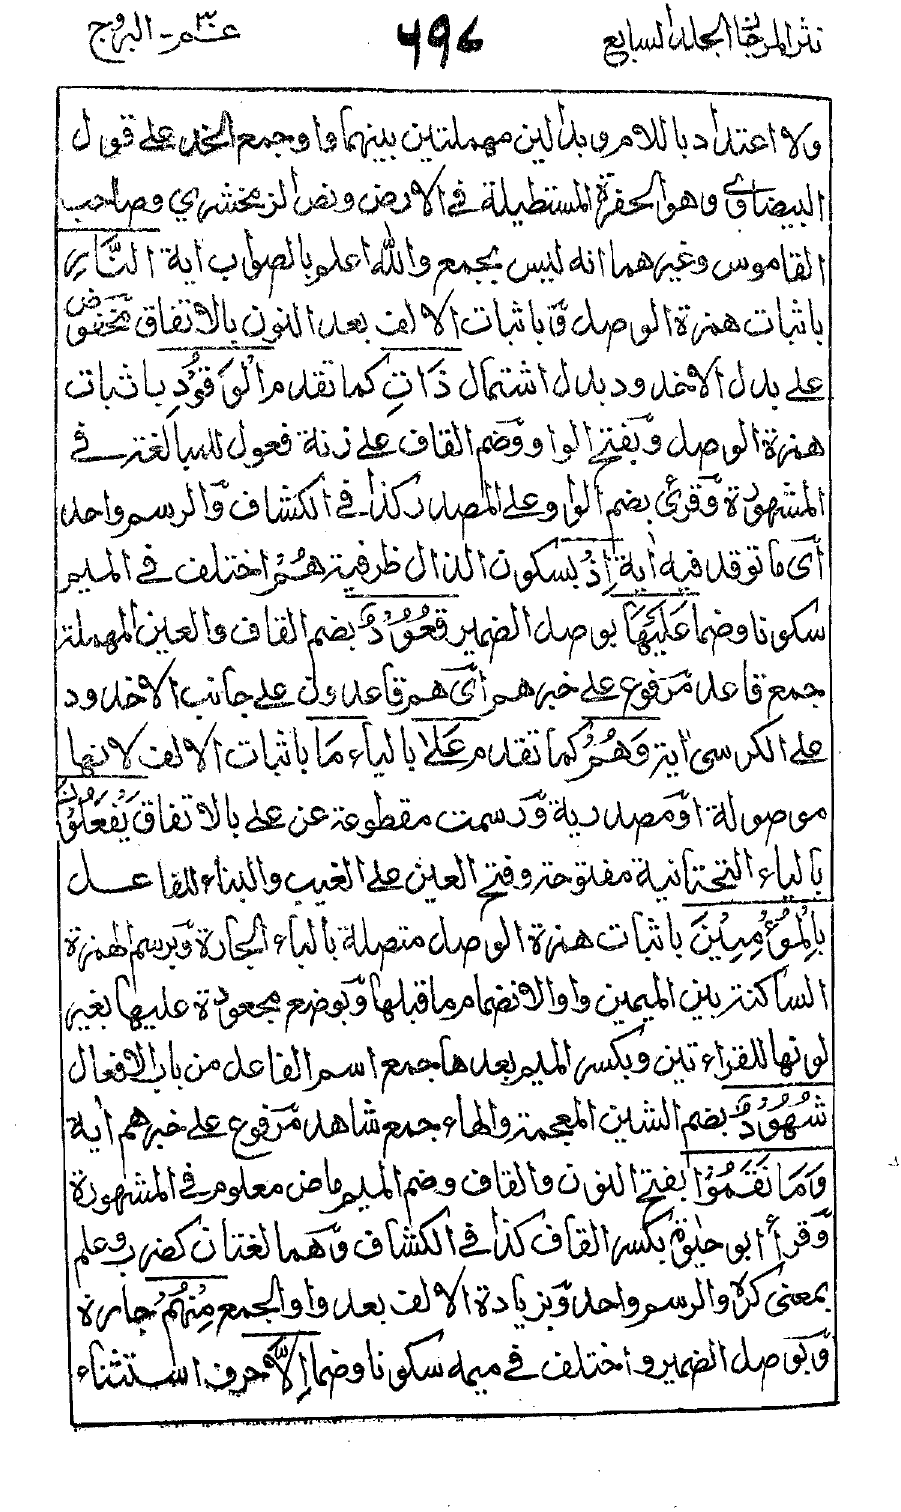 نثر المرجان الجلد السابع ٧٩٦ عـم ٣٠ - البروج
ولا اعتداد باللام وبدالين مهملتين بينهما واو جمع الخد على قول
البيضاوي وهو الحفرة المستطيلة في الارض ونص الزمخشري وصاحب
القاموس وغيرهما انه ليس بجمع والله اعلم بالصواب اية النَّارِ
باثبات همزة الوصل وَباثبات الالف بعد النون بالاتفاق مخفوض
على بدل الاخدود بدل اشتمال ذَاتِ كما تقدم الْوَقُودِ باثبات
همزة الوصل وَبفتح الواو وَضم القاف على زنة فعول للمبالغة في
المشهورة وَقرئ بضم الواو على المصدر كذا في الكشاف وَالرسم واحد
اَى ما توقد فيه اية اِذْ بسكون الذال ظرفية هُمْ اختلف في الميم
سكونا وضما عَلَيْهَا بوصل الضمير قُعُوْدٌ بضم القاف والعين المهملة
جمع قاعد مَرفوع على خبر هم اَى هم قاعدون على جانب الاخدود
على الكرسى اية وَهُمْ كما تقدم عَلٰى بالياء مَا باثبات الالف لانها
موصولة اوْ مصدرية وَرسمت مقطوعة عن على بالاتفاق يَفْعَلُوْنَ
بالياء التحتانية مفتوحة وفتح العين على الغيب والبناء للفاعـــل
بِالْمُؤْمِنِيْنَ باثبات همزة الوصل متصلة بالباء الجارة وَبرسم الهمزة
الساكنة بين الميمين واوا لانضمام ما قبلها وَبوضع مجعودة عليها بغير
لونها للقراءتين وبكسر الميم بعدها جمع اسم الفاعل من باب الافعال
شُهُوْدٌ بضم الشين المعجمة والهاء جمع شاهد مَرفوع على خبر هم اية
وَمَا نَقَمُوْا بفتح النون والقاف وضم الميم ماض معلوم في المشهورة
وَقرأ ابو حيٰوة بكسر القاف كذا في الكشاف وَهما لغتان كضرب وعلم
بمعنى كره والرسم واحد وَبزيادة الالف بعد واو الجمع مِنْهُمْ جارة
وَبوصل الضمير واختلف في ميمه سكونا وضما اِلَّا حرف استثناء